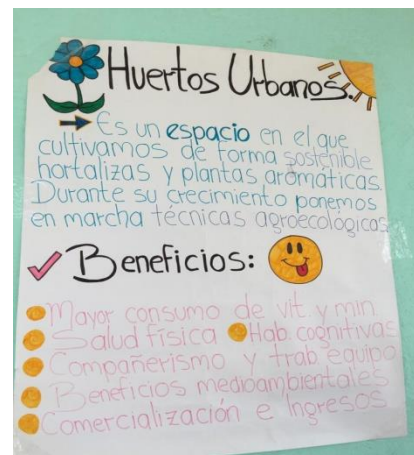 Huertos Urbanos.
Es un espacio en el que
cultivamos de forma sostenible
hortalizas y plantas aromáticas.
Durante su crecimiento ponemos
en marcha técnicas agroecológicas
Beneficios:
Mayor consumo de vit. y min.
Salud física Hab. cognitivas
Compañerismo y trab. equipo
Beneficios medioambientales
Comercialización e Ingresos